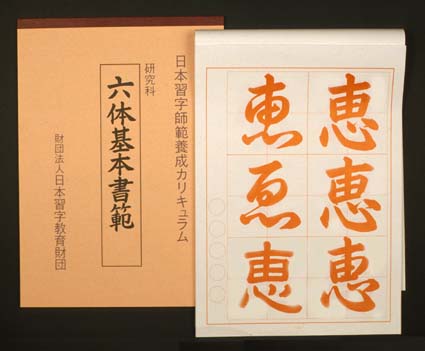 日本習字師範養成カリキュラム
研究科
六体基本書範
財団法人日本習字教育財団
恵
恵
恵
恵
恵
恵